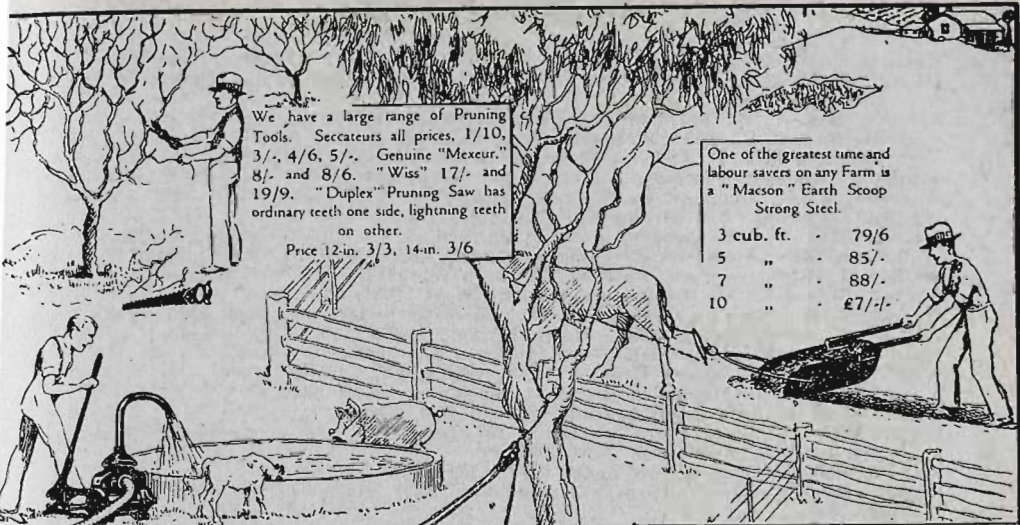 We have a large range of Pruning
Tools. Seccateurs all prices, 1/10,
3/-, 4/6, 5/-. Genuine "Mexeur."
8/- and 8/6. "Wiss" 17/- and
19/9. "Duplex" Pruning Saw has
ordinary teeth one side, lightning teeth
on other.
Price 12-in. 3/3, 14-in. 3/6
One of the greatest time and
labour savers on any Farm is
a "Macson" Earth Scoop
Strong Steel.
3 cub. ft. - 79/6
5 ,, - 85/-
7 ,, - 88/-
10 ,, - £7/-/-